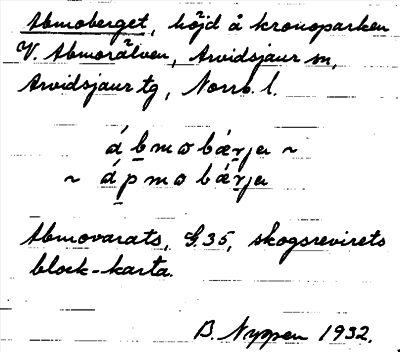 Abmoberget, höjd å kronoparken
V. Abmorälven, Arvidsjaur sn,
Arvidsjaur tg, Norrb. l.
ábmωbǽrja ~
~ ápmωbǽrja
Abmovarats, G.35, skogsrevirets
block-karta.
B. Nyppen 1932.